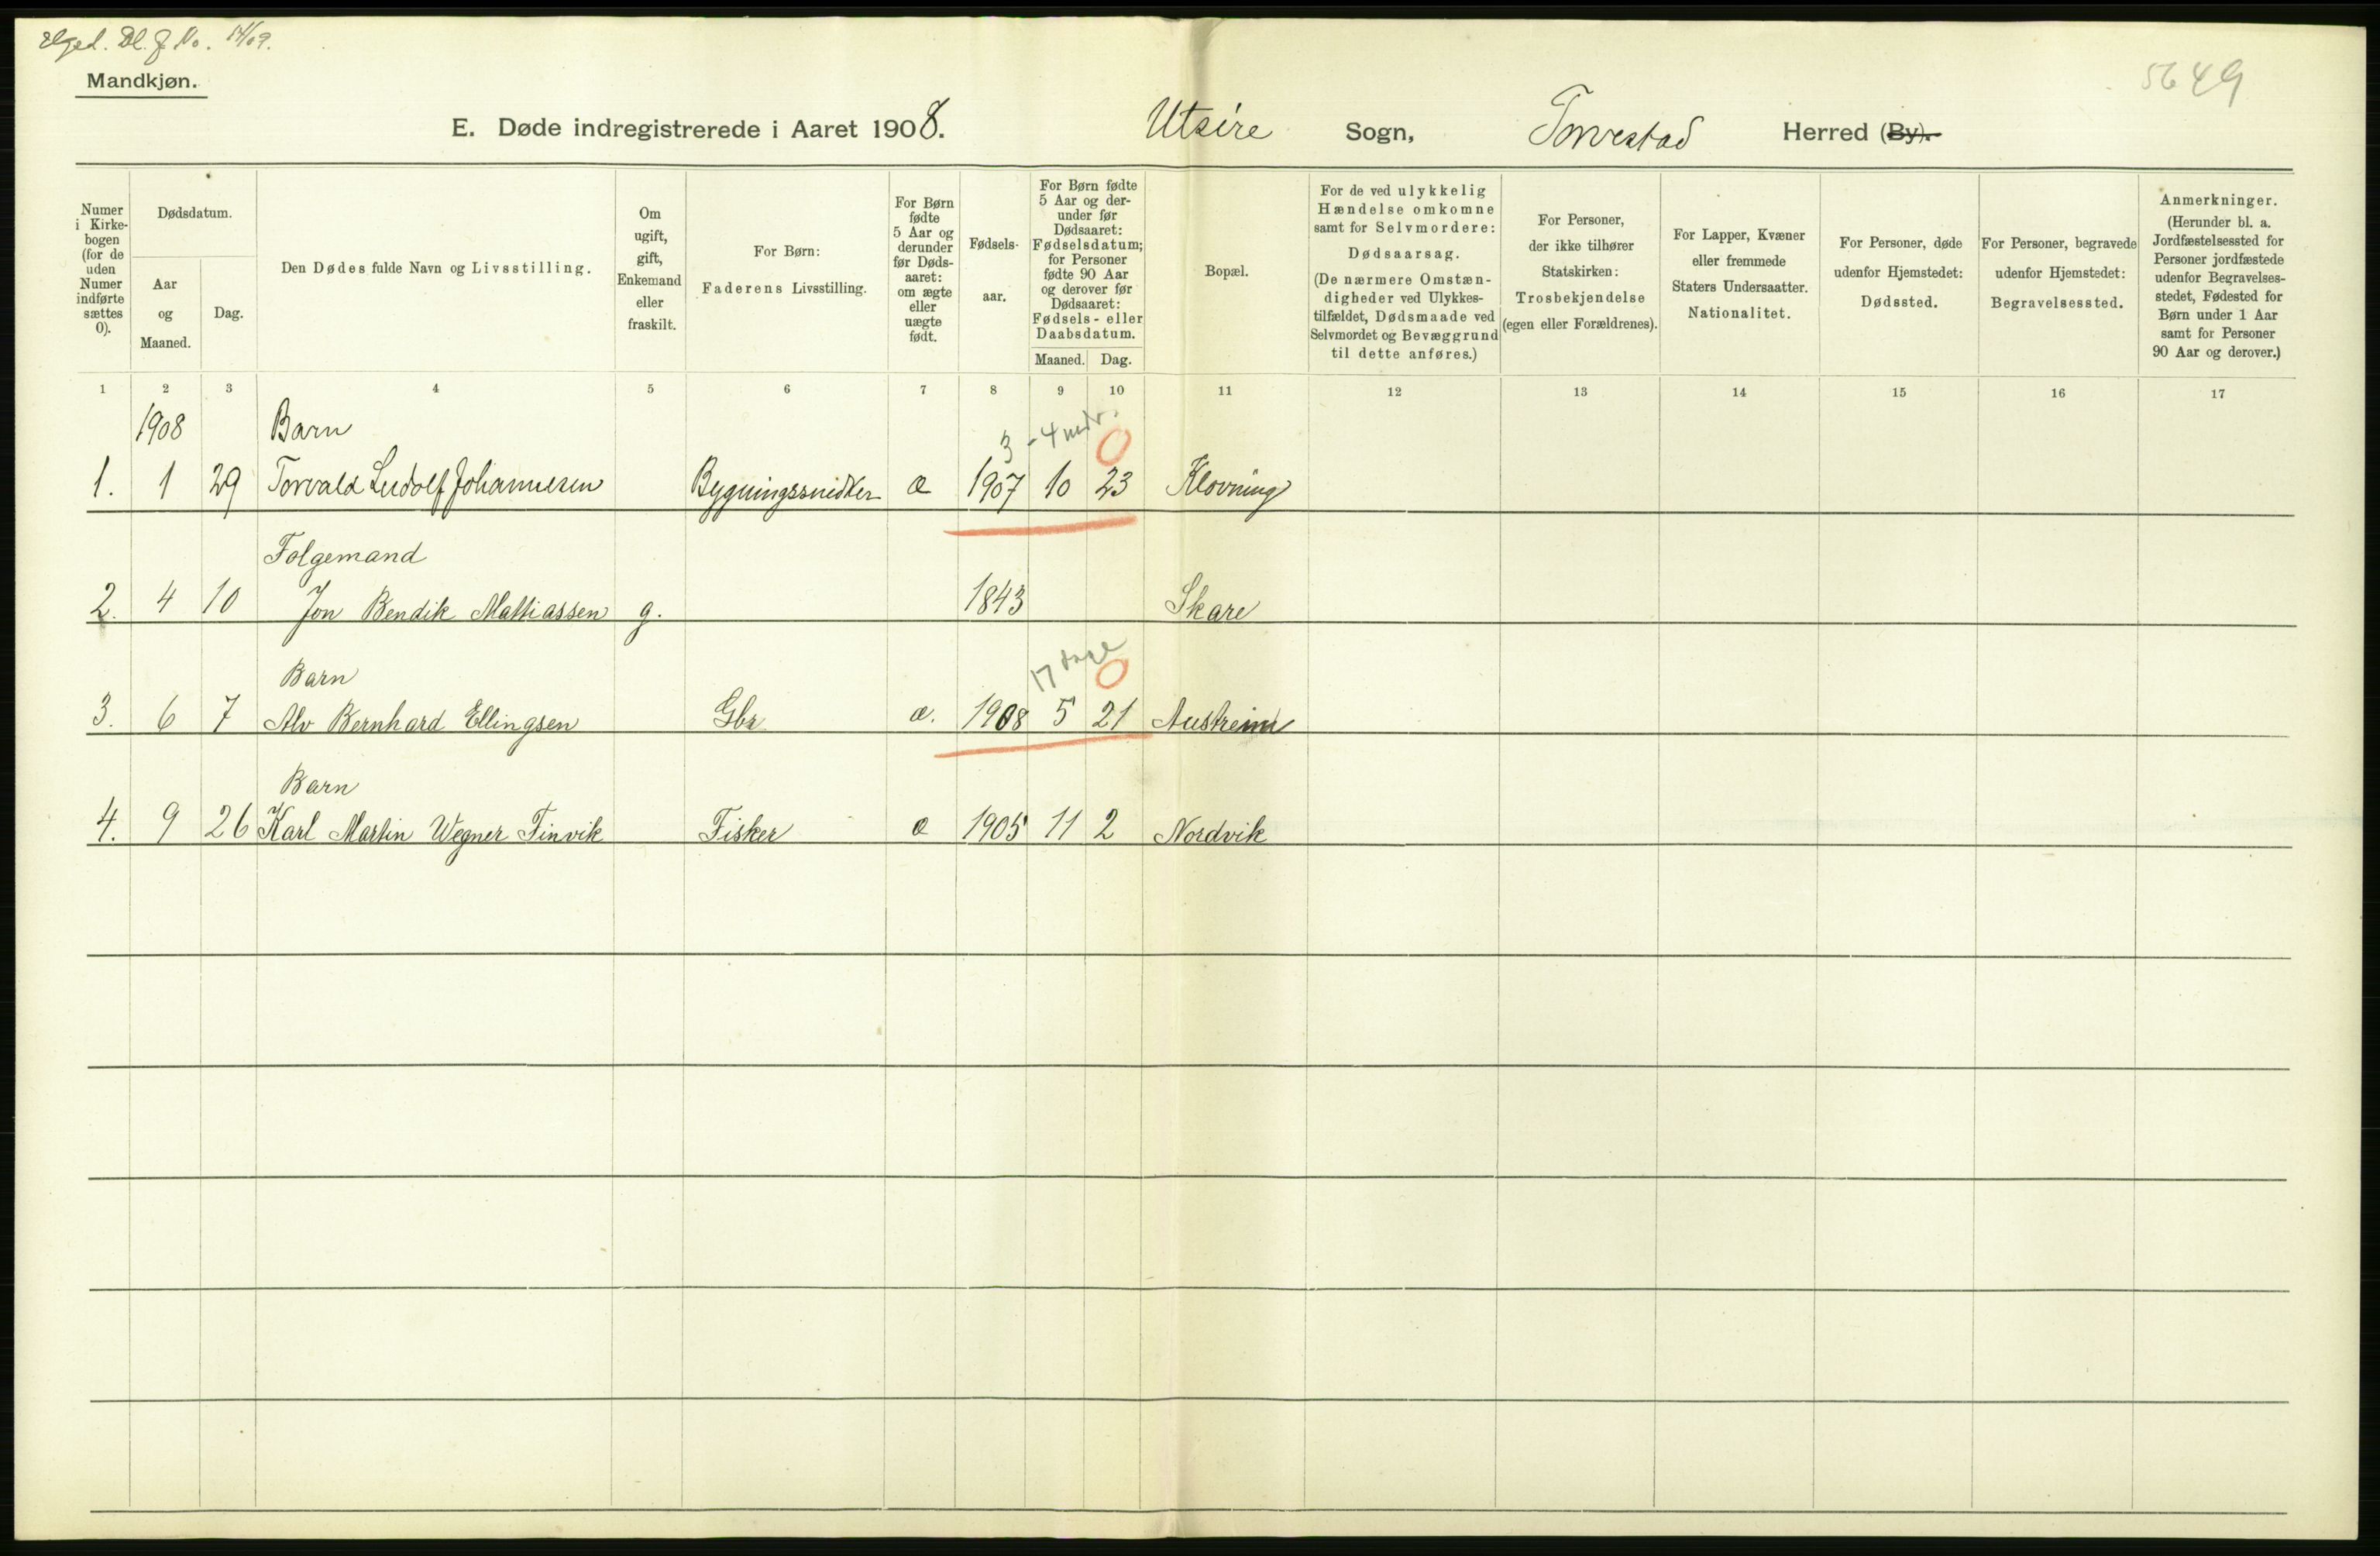 Dl. J No. 14/09.
Mandkjøn.
5649
E. Døde indregistrerede i Aaret 1908. Utsire Sogn, Torvestad Herred (By).
Numer i Kirkebogen (for de uden Numer indførte sættes 0).
Dødsdatum.
Aar og Maaned.
Dag.
Den Dødes fulde Navn og Livsstilling.
Om ugift, gift, Enkemand eller fraskilt.
For Børn: Faderens Livsstilling.
For Børn fødte 5 Aar og derunder før Dødsaaret: om ægte eller uægte født.
Fødselsaar.
For Børn fødte 5 Aar og derunder før Dødsaaret: Fødselsdatum; for Personer fødte 90 Aar og derover før Dødsaaret: Fødsels- eller Daabsdatum.
Maaned. Dag.
Bopæl.
For de ved ulykkelig Hændelse omkomne samt for Selvmordere: Dødsaarsag. (De nærmere Omstændigheder ved Ulykkestilfældet, Dødsmaade ved Selvmordet og Bevæggrund til dette anføres.)
For Personer, der ikke tilhører Statskirken: Trosbekjendelse (egen eller Forældrenes).
For Lapper, Kvæner eller fremmede Staters Undersaatter. Nationalitet.
For Personer, døde udenfor Hjemstedet: Dødssted.
For Personer, begravede udenfor Hjemstedet: Begravelsessted.
Anmerkninger. (Herunder bl. a. Jordfæstelsessted for Personer jordfæstede udenfor Begravelsesstedet, Fødested for Børn under 1 Aar samt for Personer 90 Aar og derover.)
1 2 3 4 5 6 7 8 9 10 11 12 13 14 15 16 17
1908 Barn 3-4 mdr. 0
1. 1 29 Torvald Ludolf Johannesen Bygningssnidker æ 1907 10 23 Klovning
Folgemand
2. 4 10 Jon Bendik Mattiassen g. 1843 Skare
Barn 17 dage 0
3. 6 7 Alv Bernhard Ellingsen Gbr æ. 1908 5 21 Austreim
Barn
4. 9 26 Karl Martin Wegner Finvik Fisker æ 1905 11 2 Nordvik